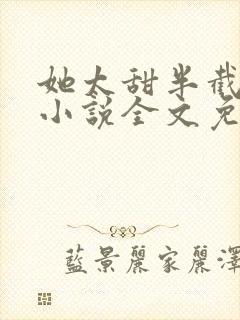 她太甜半截
小说全文免
藍景麗家麗澤